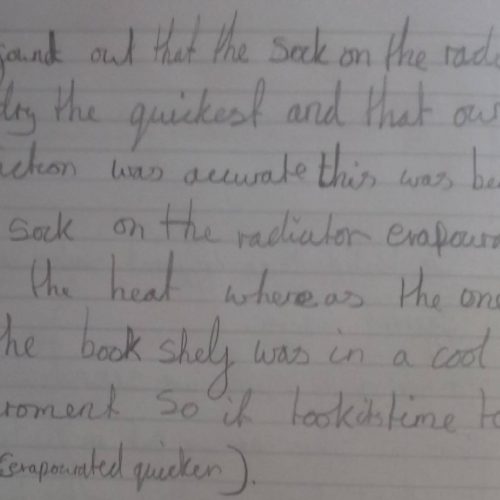 found out that the sock on the radi
dry the quickest and that our
iction was accurate this was be
sock on the radiator evapour
the heat whereas the one
he book shelf was in a cool
roment so it took its time to
(evapourated quicker).